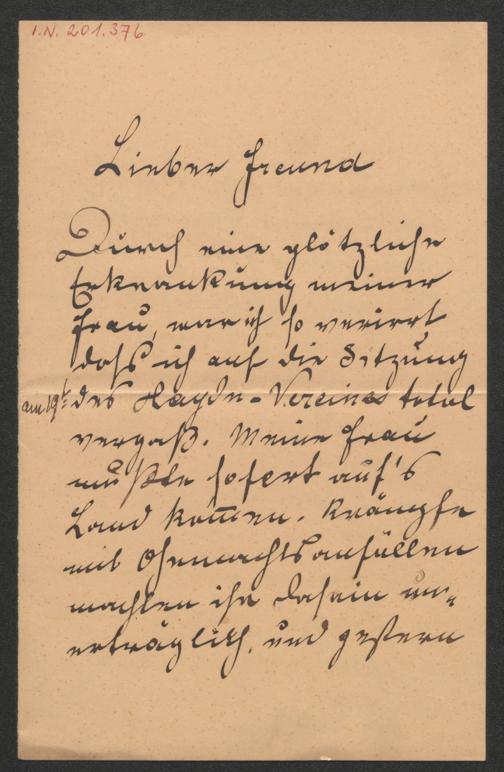 I.N. 201.376
Lieber Freund
Durch eine plötzliche
Erkrankung meiner
Frau, war ich so verirrt
dass ich auf die Sitzung
am 19t. des Haydn-Vereines total
vergaß. Meine Frau
mußte sofort auf's
Land kommen. Krämpfe
mit Ohnmachtsanfällen
machten ihr Dasein un„
erträglich, und gestern